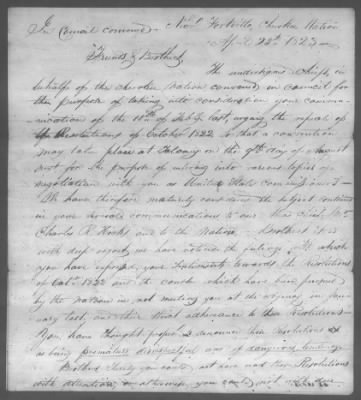 In Council convened. Near Fortville, Cherokee Nation
April 25th 1823
Friends & Brothers
The undersigned chiefs, in
behalf of the cherokee Nation convened in council for
the purpose of taking into consideration your commu-
nication of the of Feby last, urging the repeal of
the Resolutions of October 1822 so that a convention
may take place at on the day of August
next for the purpose of entering into various topics of
negotiation with you as United States commissioners
We have therefore maturely considered the subject contained
in your several communications to our Mr
Charles R. Hicks and to the Nation. Brothers it is
with deep regret we have the feelings in which
you have expressed your sentiments towards the resolutions
of Octr 1822 and the course which have been pursued
by the nation in not meeting you at the agency in Jan-
uary last, and their adherence to those resolutions
You have thought proper to denounce these resolutions
as being premature disrespectful and of dangerous tendency
Brothers surely you could not have read these Resolutions
with attention, or otherwise, you could not